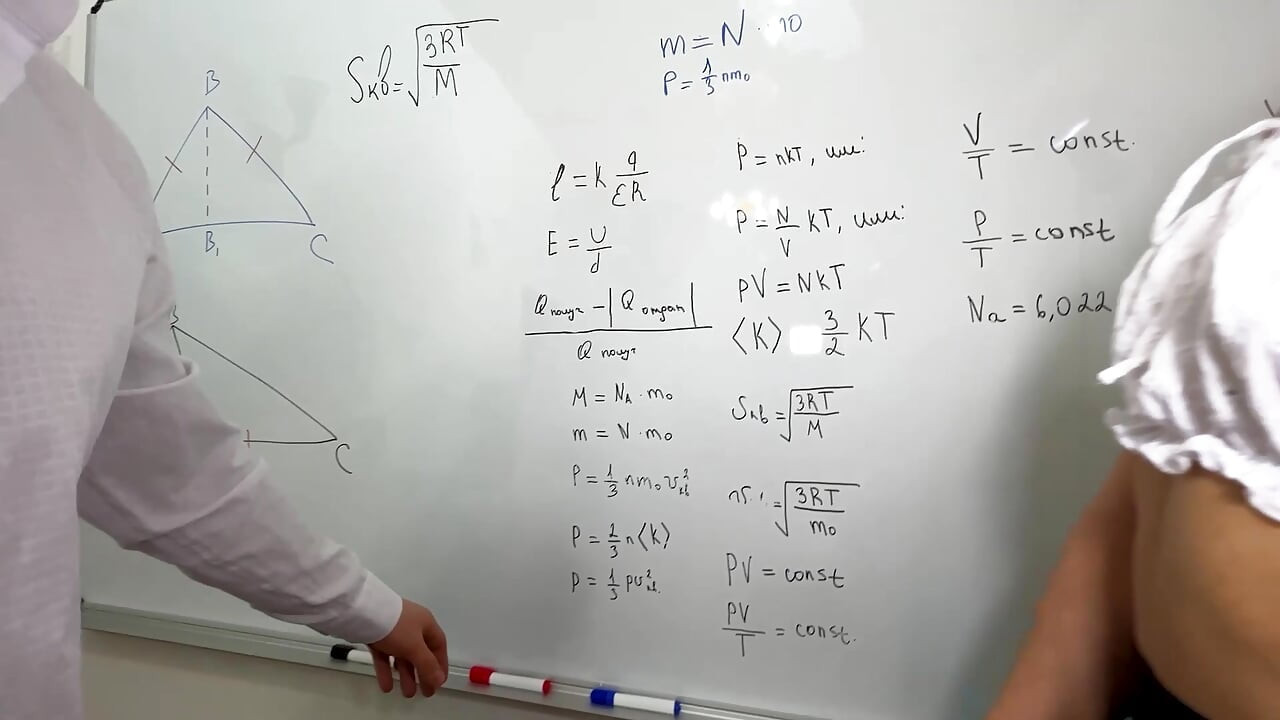 B
B₁ C
C
Sкв = √(3RT/M)
m = N · 10
P = 1/3 nm₀
ℓ = k q/εR
E = U/d
Qполуч − |Qотдал| / Qполуч
M = Nᴀ · m₀
m = N · m₀
P = 1/3 nm₀v²кв
P = 2/3 n⟨K⟩
P = 1/3 pv²кв.
P = nkT, или:
P = N/V kT, или:
pV = NkT
⟨K⟩ 3/2 KT
Sкв = √(3RT/M)
= √(3RT/m₀)
PV = const
PV/T = const.
V/T = const.
P/T = const
Na = 6,022